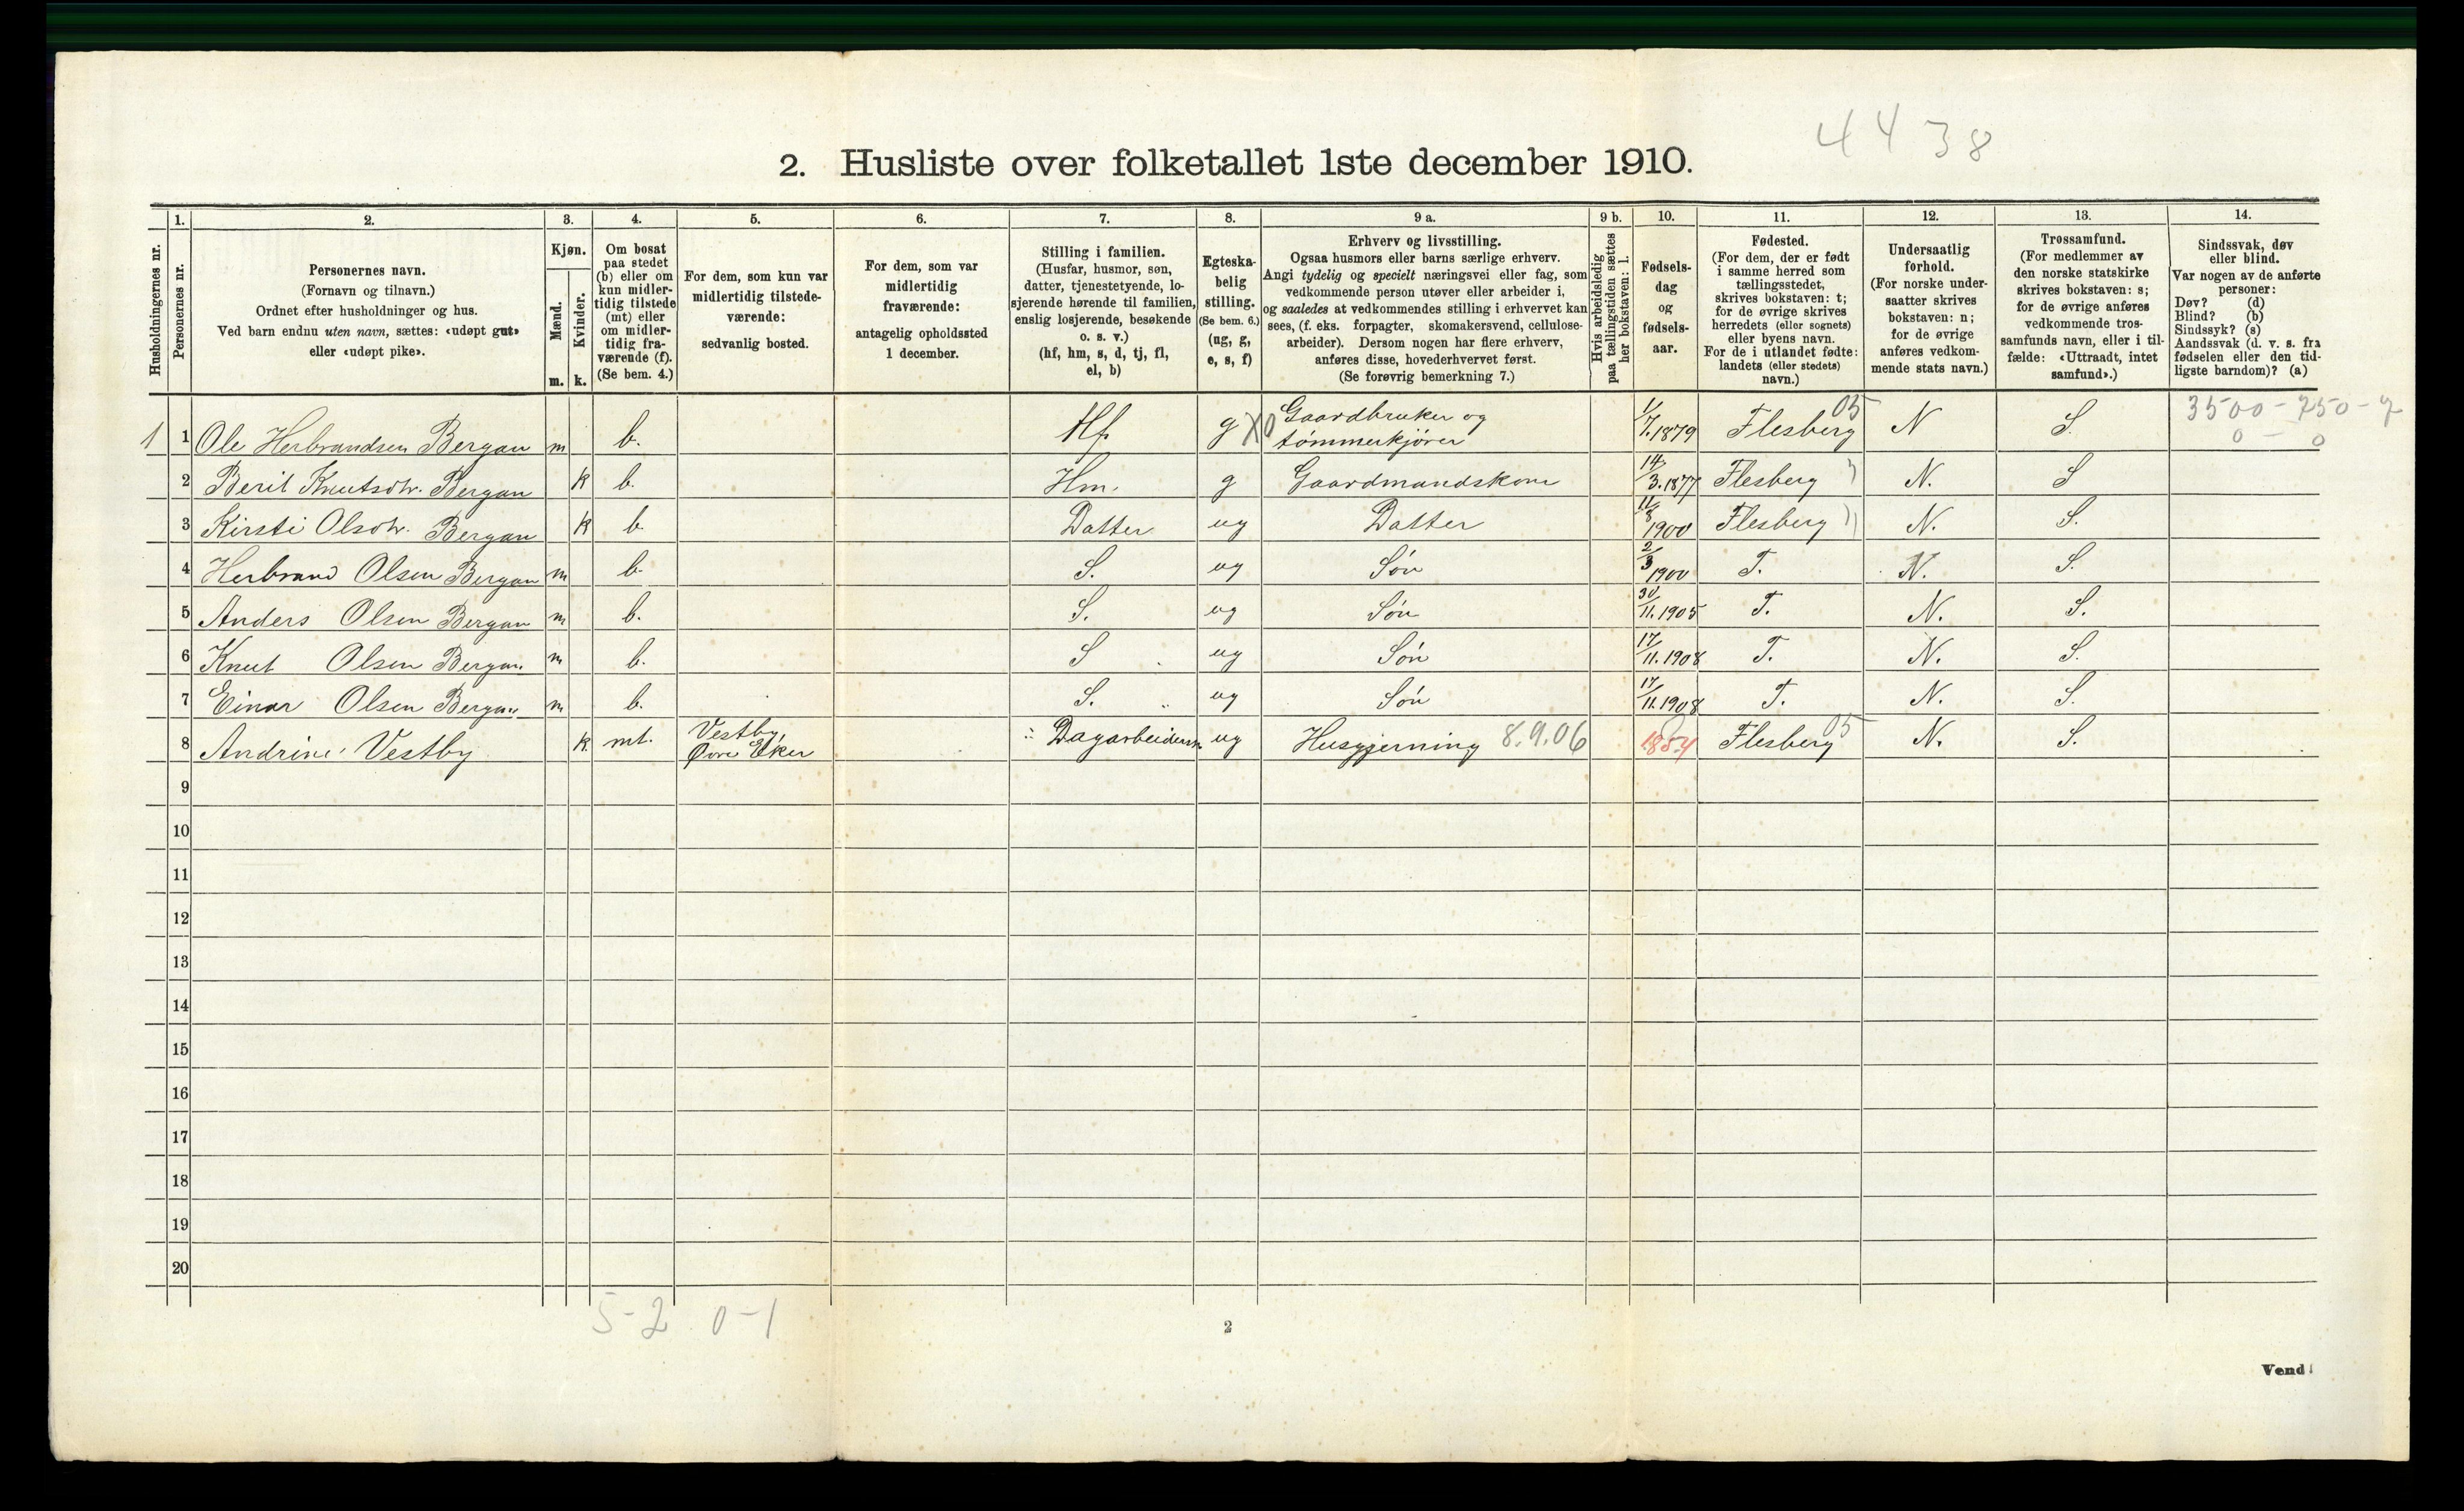 44 38
2. Husliste over folketallet 1ste december 1910.
1. 2. 3. 4. 5. 6. 7. 8. 9 a. 9 b. 10. 11. 12. 13. 14.
Husholdningernes nr.
Personernes nr.
Personernes navn.
(Fornavn og tilnavn.)
Ordnet efter husholdninger og hus.
Ved barn endnu uten navn, sættes: «udøpt gut»
eller «udøpt pike».
Kjøn.
Mænd.
Kvinder.
m. k.
Om bosat
paa stedet
(b) eller om
kun midler-
tidig tilstede
(mt) eller
om midler-
tidig fra-
værende (f).
(Se bem. 4.)
For dem, som kun var
midlertidig tilstede-
værende:
sedvanlig bosted.
For dem, som var
midlertidig
fraværende:
antagelig opholdssted
1 december.
Stilling i familien.
(Husfar, husmor, søn,
datter, tjenestetyende, lo-
sjerende hørende til familien,
enslig losjerende, besøkende
o. s. v.)
(hf, hm, s, d, tj, fl,
el, b)
Egteska-
belig
stilling.
(Se bem. 6.)
(ug, g,
e, s, f)
Erhverv og livsstilling.
Ogsaa husmors eller barns særlige erhverv.
Angi tydelig og specielt næringsvei eller fag, som
vedkommende person utøver eller arbeider i,
og saaledes at vedkommendes stilling i erhvervet kan
sees, (f. eks. forpagter, skomakersvend, cellulose-
arbeider). Dersom nogen har flere erhverv,
anføres disse, hovederhvervet først.
(Se forøvrig bemerkning 7.)
Hvis arbeidsledig
paa tællingstiden sættes
her bokstaven: l.
Fødsels-
dag
og
fødsels-
aar.
Fødested.
(For dem, der er født
i samme herred som
tællingsstedet,
skrives bokstaven: t;
for de øvrige skrives
herredets (eller sognets)
eller byens navn.
For de i utlandet fødte:
landets (eller stedets)
navn.)
Undersaatlig
forhold.
(For norske under-
saatter skrives
bokstaven: n;
for de øvrige
anføres vedkom-
mende stats navn.)
Trossamfund.
(For medlemmer av
den norske statskirke
skrives bokstaven: s;
for de øvrige anføres
vedkommende tros-
samfunds navn, eller i til-
fælde: «Uttraadt, intet
samfund».)
Sindssvak, døv
eller blind.
Var nogen av de anførte
personer:
Døv? (d)
Blind? (b)
Sindssyk? (s)
Aandssvak (d. v. s. fra
fødselen eller den tid-
ligste barndom)? (a)
3500-750-7
0 - 0
1 1 Ole Herbrandsen Bergan m b. Hf. g X0 Gaardbruker og tømmerkjører 1/7.1879 Flesberg 05 N S.
2 Berit Knutsdtr. Bergan k b. Hm. g Gaardmandskone 14/3.1877 Flesberg N. S
3 Kirsti Olsdtr. Bergan k b. Datter ug Datter 11/8 1900 Flesberg N. S.
4 Herbrand Olsen Bergan m b. S. ug Søn 2/3 1900 T. N. S.
5 Anders Olsen Bergan m b. S. ug Søn 30/11.1905 T. N. S.
6 Knut Olsen Bergan m b. S ug Søn 17/11.1908 T. N. S.
7 Einar Olsen Bergan m b. S. ug Søn 17/11.1908 T. N. S.
8 Andrine Vestby k. mt. Vestby, Øvre Eker Dagarbeiderske ug Husgjerning 8.9.06 1854 Flesberg 05 N. S.
9
10
11
12
13
14
15
16
17
18
19
20
5-2 0-1
2
Vend!